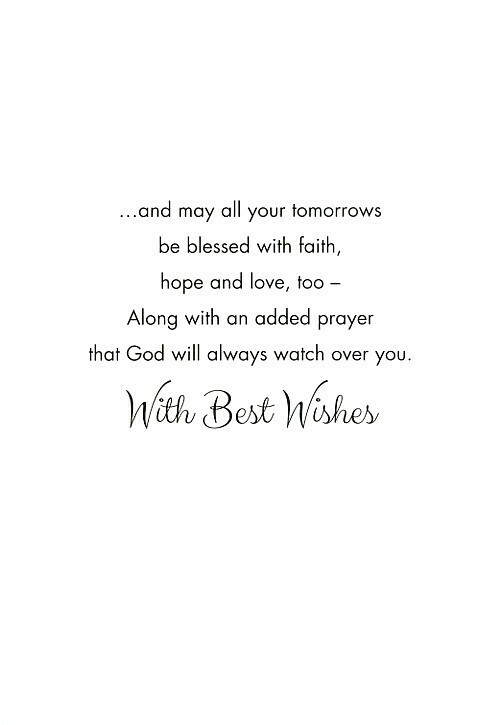 ...and may all your tomorrows
be blessed with faith,
hope and love, too –
Along with an added prayer
that God will always watch over you.
With Best Wishes